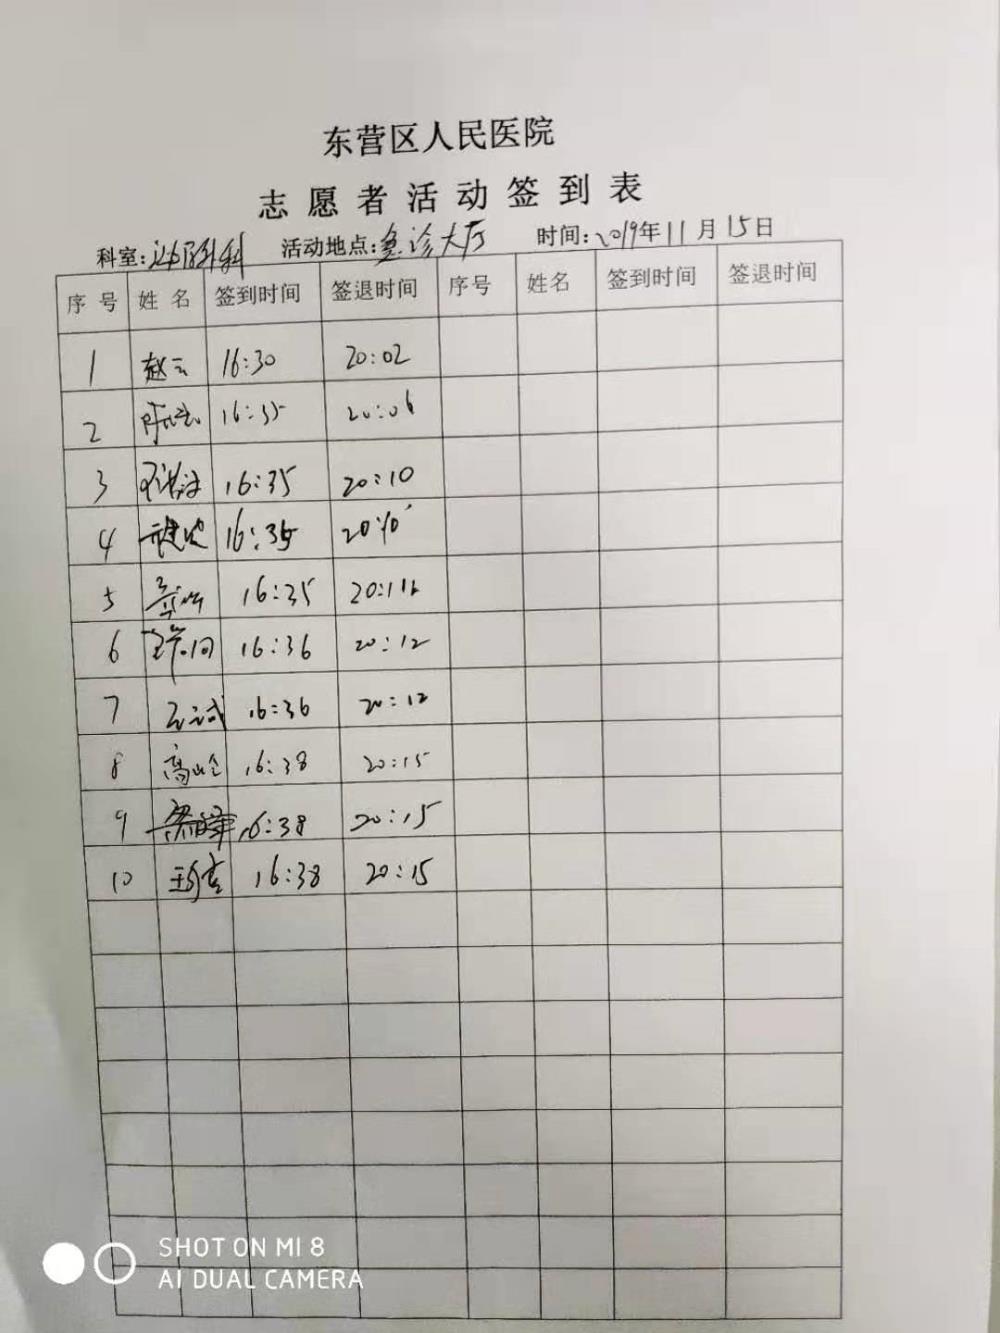 东营区人民医院
志愿者活动签到表
科室: 活动地点:急诊大厅 时间:2019年11月15日
序号 姓名 签到时间 签退时间 序号 姓名 签到时间 签退时间
1 赵云 16:30 20:02
2 16:35 20:06
3 16:35 20:10
4 16:35
5 16:35
6 16:36 20:12
7 16:36 20:12
8 16:38 20:15
9 16:38 20:15
10 16:38 20:15
SHOT ON MI 8
AI DUAL CAMERA